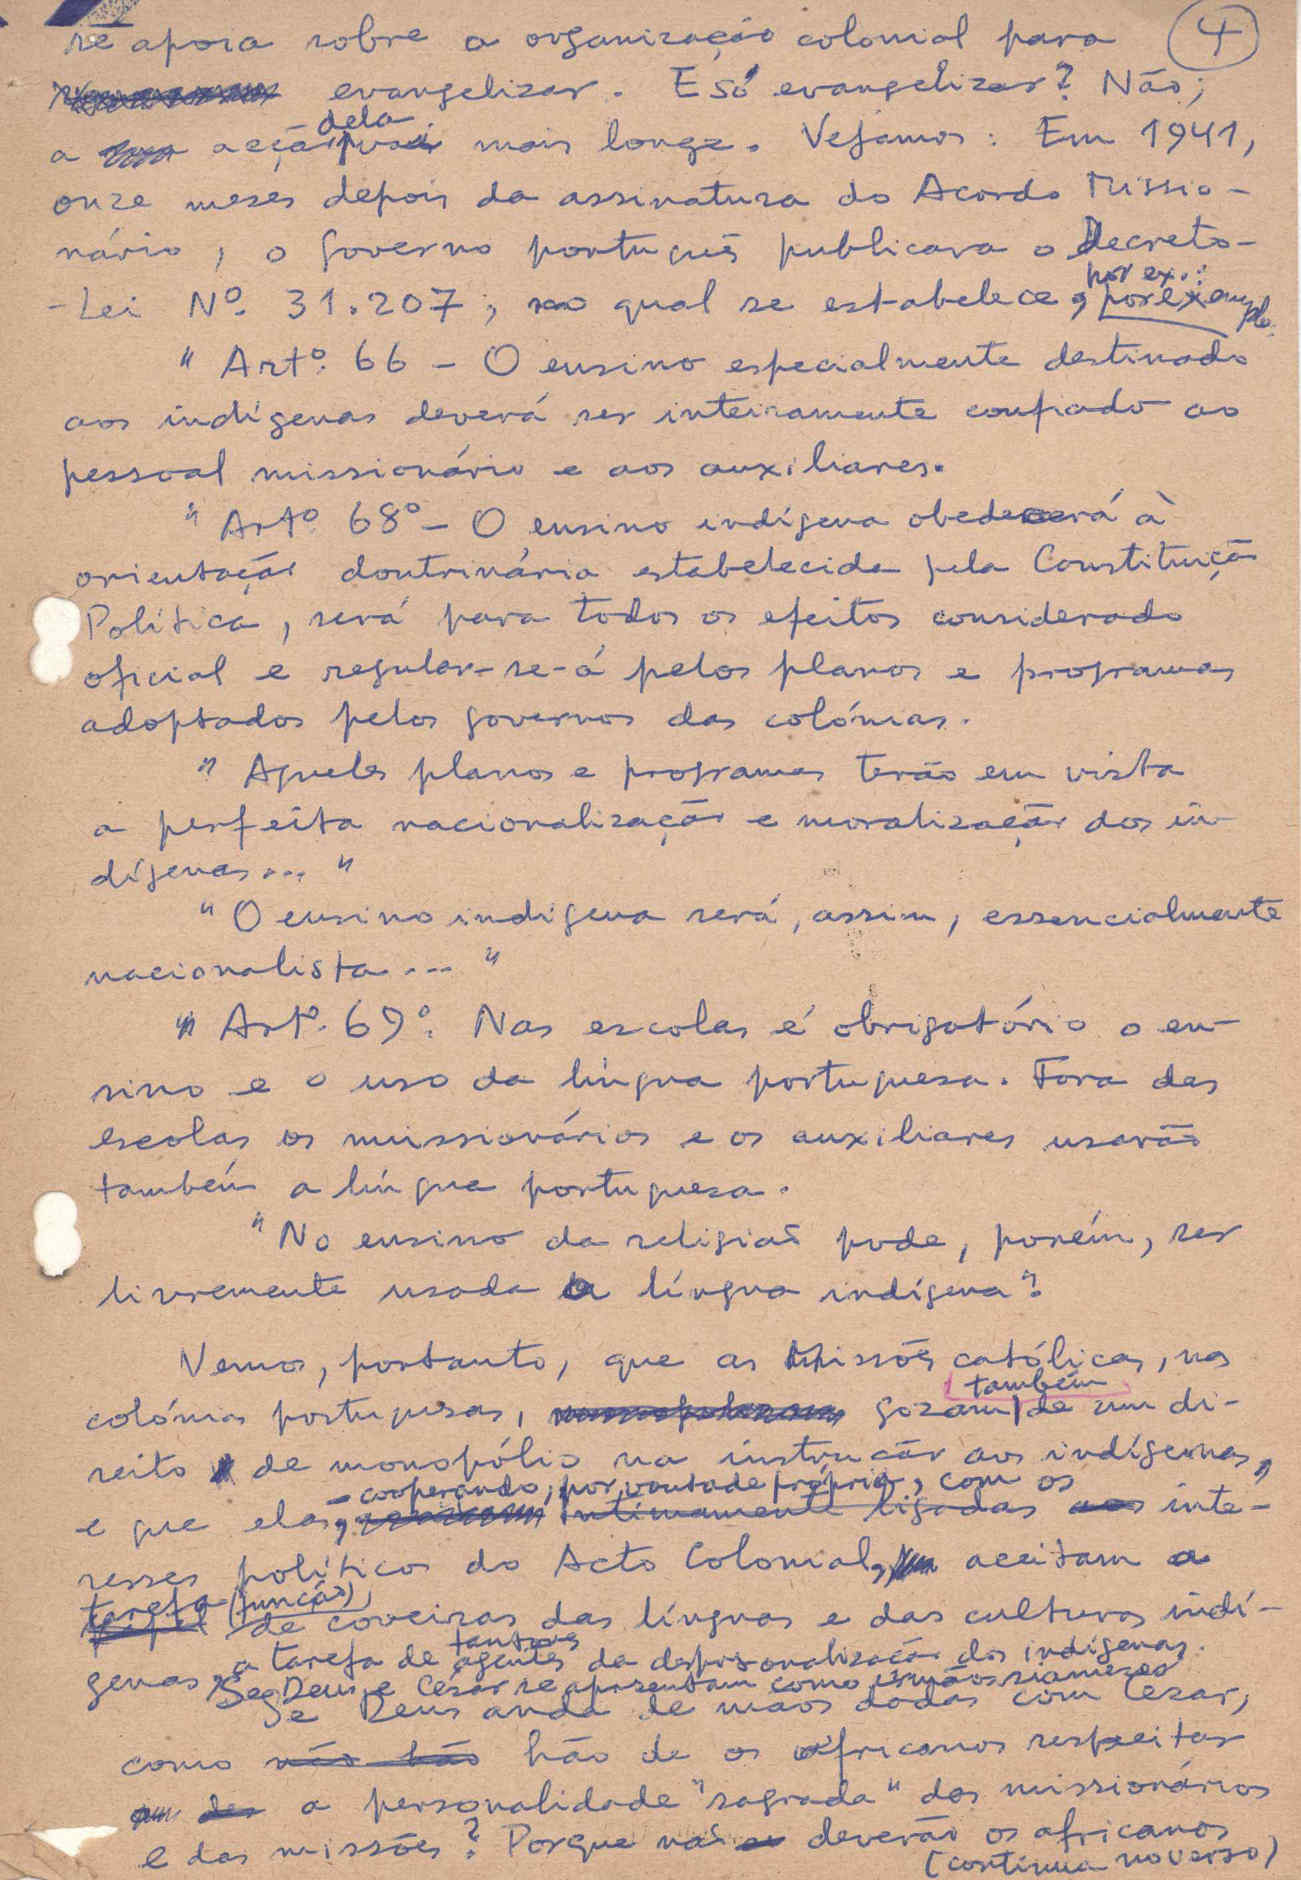 4
se apoia sobre a organização colonial para
evangelizar. E só evangelizar? Não;
dela
a acção vai mais longe. Vejamos: Em 1941,
onze meses depois da assinatura do Acordo Missio-
nário, o governo português publicava o Decreto-
por ex.:
-Lei Nº. 31.207, no qual se estabelece, por exemplo:
" Artº. 66 - O ensino especialmente destinado
aos indígenas deverá ser inteiramente confiado ao
pessoal missionário e aos auxiliares.
" Artº 68º - O ensino indígena obedecerá à
orientação doutrinária estabelecida pela Constituição
Política, será para todos os efeitos considerado
oficial e regular-se-á pelos planos e programas
adoptados pelos governos das colónias.
" Aqueles planos e programas terão em vista
a perfeita nacionalização e moralização dos in-
dígenas... "
" O ensino indígena será, assim, essencialmente
nacionalista... "
" Artº. 69º. Nas escolas é obrigatório o en-
sino e o uso da língua portuguesa. Fora das
escolas os missionários e os auxiliares usarão
também a língua portuguesa.
" No ensino da religião pode, porém, ser
livremente usada a língua indígena".
Vemos, portanto, que as Missões católicas, nas
também
colónias portuguesas, gozam de um di-
reito de monopólio na instrução aos indígenas,
- cooperando, por vontade própria, com os
e que elas, intimamente ligadas aos inte-
resses políticos do Acto Colonial, aceitam a
tarefa (função)
papel de coveiras das línguas e das culturas indí-
tantos
genas, a tarefa de agentes da despersonalização dos indígenas.
Se Deus e César se apresentam como irmãos siameses
Se Deus anda de mãos dadas com Cesar,
como não hão hão de os africanos respeitar
a personalidade "sagrada" dos missionários
e das missões? Porque não deverão os africanos
(continua no verso)